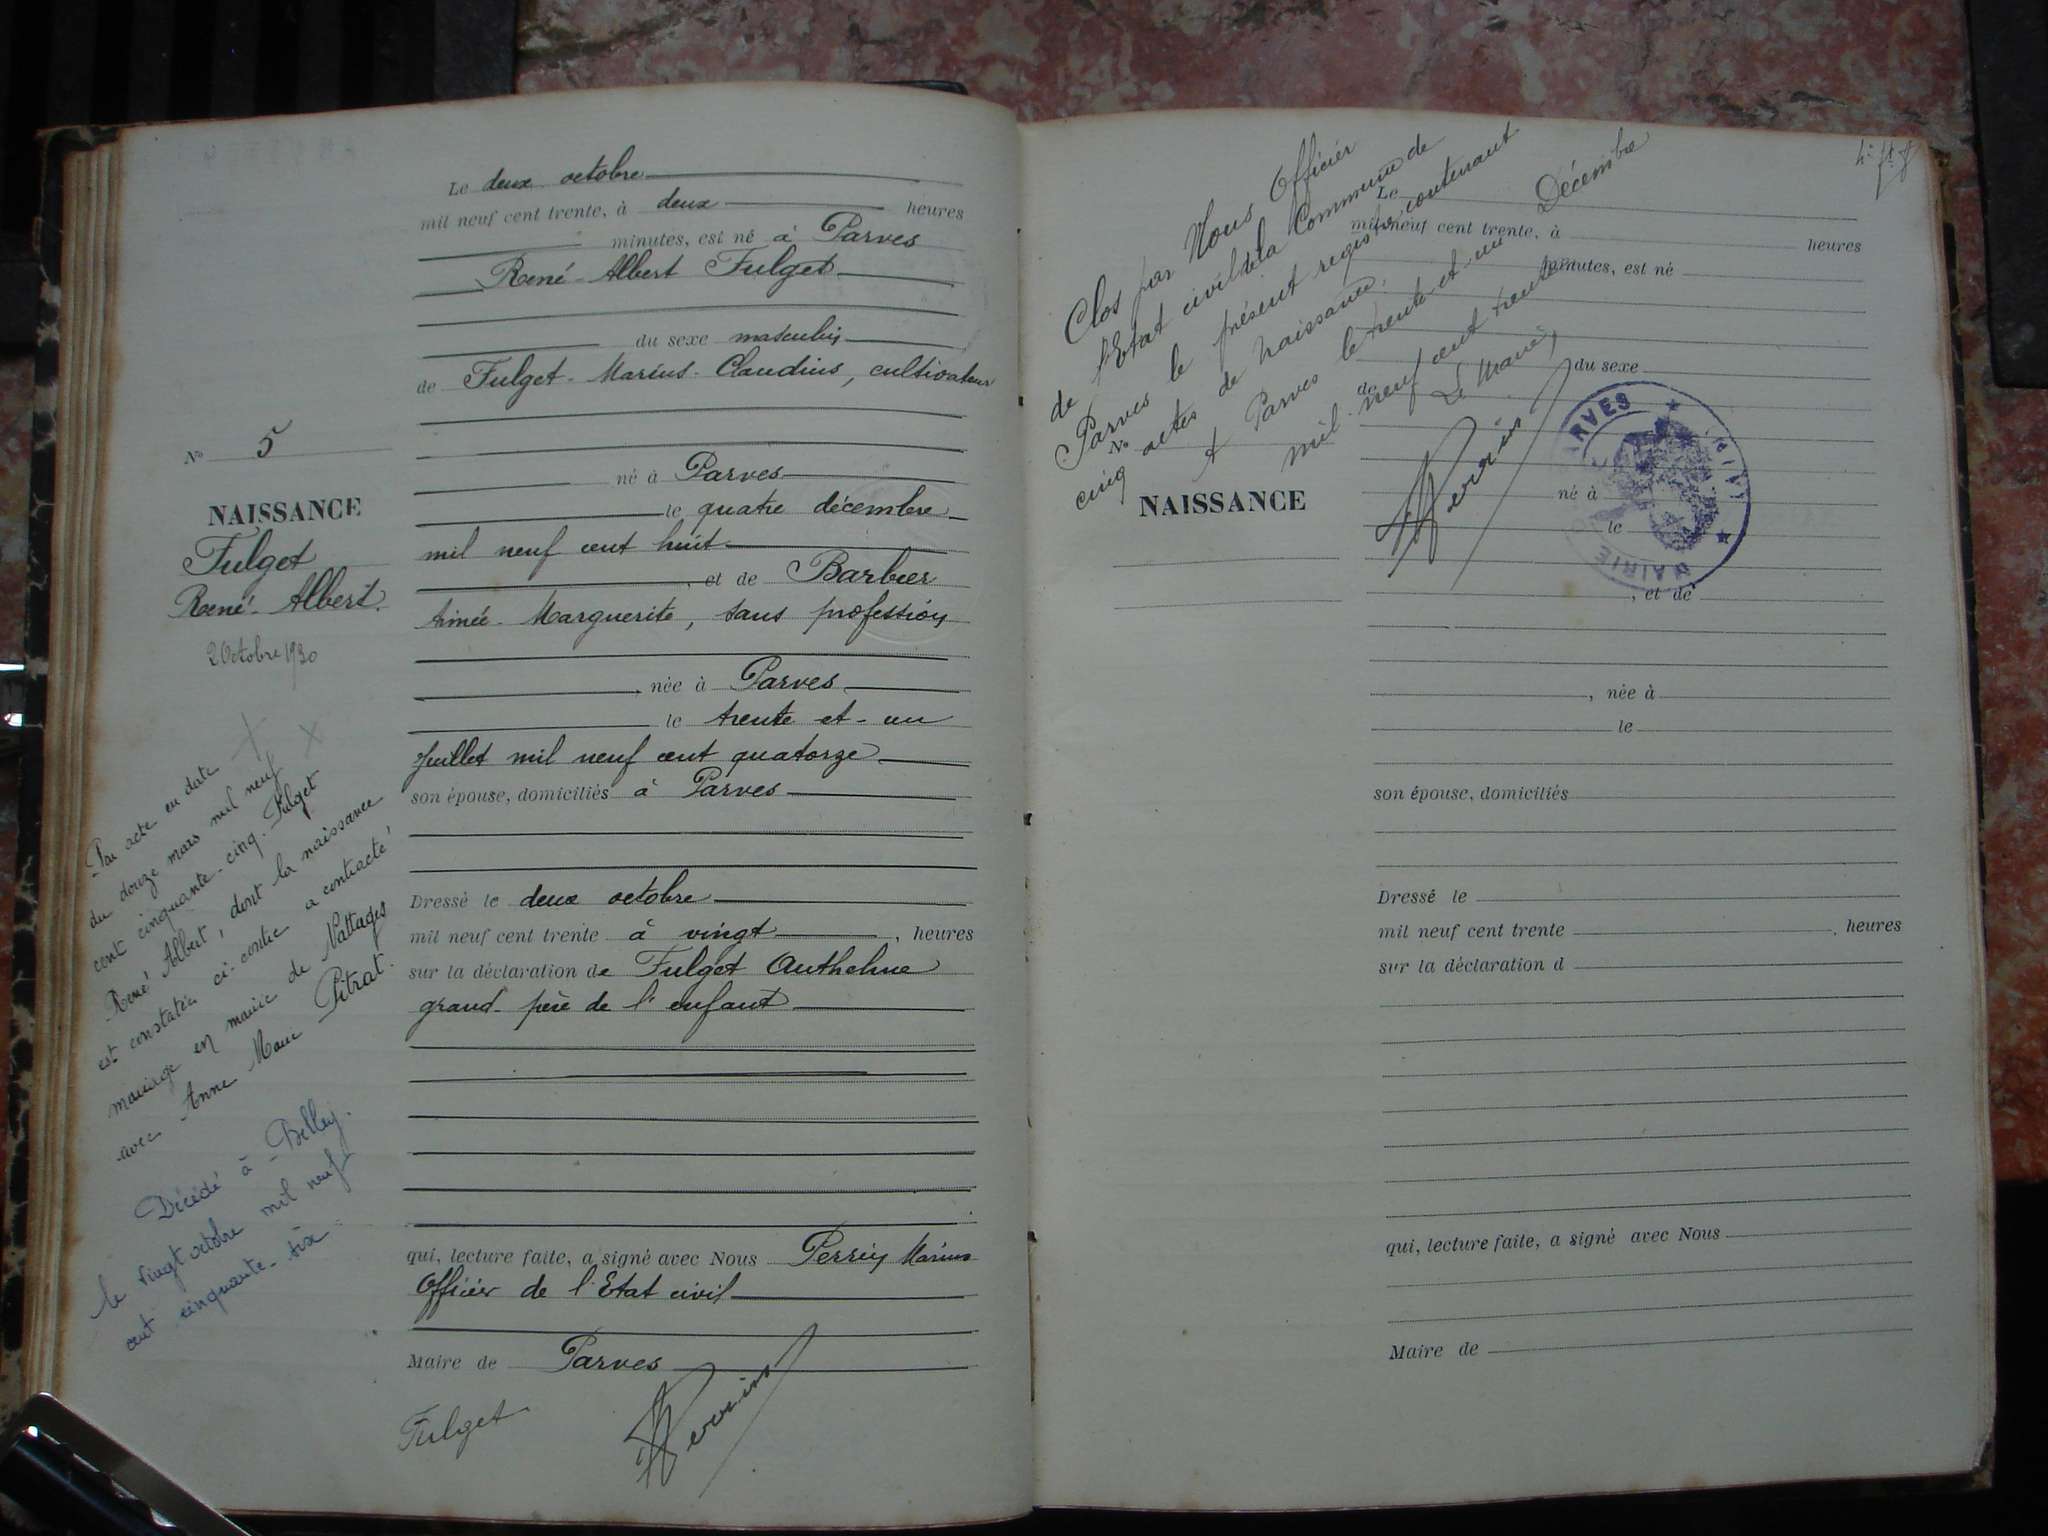 Le deux octobre
mil neuf cent trente, à deux heures
minutes, est né à Parves
René-Albert Fulget
du sexe masculin
de Fulget-Marius-Claudius, cultivateur
né à Parves
le quatre décembre
mil neuf cent huit
, et de Barbier
Aimée-Marguerite, sans profession
, née à Parves
le trente et-un
juillet mil neuf cent quatorze
son épouse, domiciliés à Parves
Dressé le deux octobre
mil neuf cent trente à vingt , heures
sur la déclaration de Fulget Anthelme
grand-père de l'enfant
qui, lecture faite, a signé avec Nous Perrin Marius
Officier de l'Etat civil
Maire de Parves
Fulget
Perrin
No 5
NAISSANCE
Fulget
René-Albert.
2 Octobre 1930
Par acte en date
du douze mars mil neuf
cent cinquante-cinq. Fulget
René Albert, dont la naissance
est constatée ci-contre a contracté
mariage en mairie de Nattages
avec Anne Marie Pitrat.
Décédé à Belley.
le vingt octobre mil neuf
cent cinquante-six.
Clos par Nous Officier
de l'Etat civil de la Commune de
Parves le présent registre contenant
cinq actes de naissance.
A Parves le trente et un Décembre
mil neuf cent trente
Le Maire,
Perrin
MAIRIE PARVES (AIN)
No
NAISSANCE
Le
mil neuf cent trente, à heures
minutes, est né
du sexe
de
né à
le
, et de
, née à
le
son épouse, domiciliés
Dressé le
mil neuf cent trente , heures
sur la déclaration d
qui, lecture faite, a signé avec Nous
Maire de